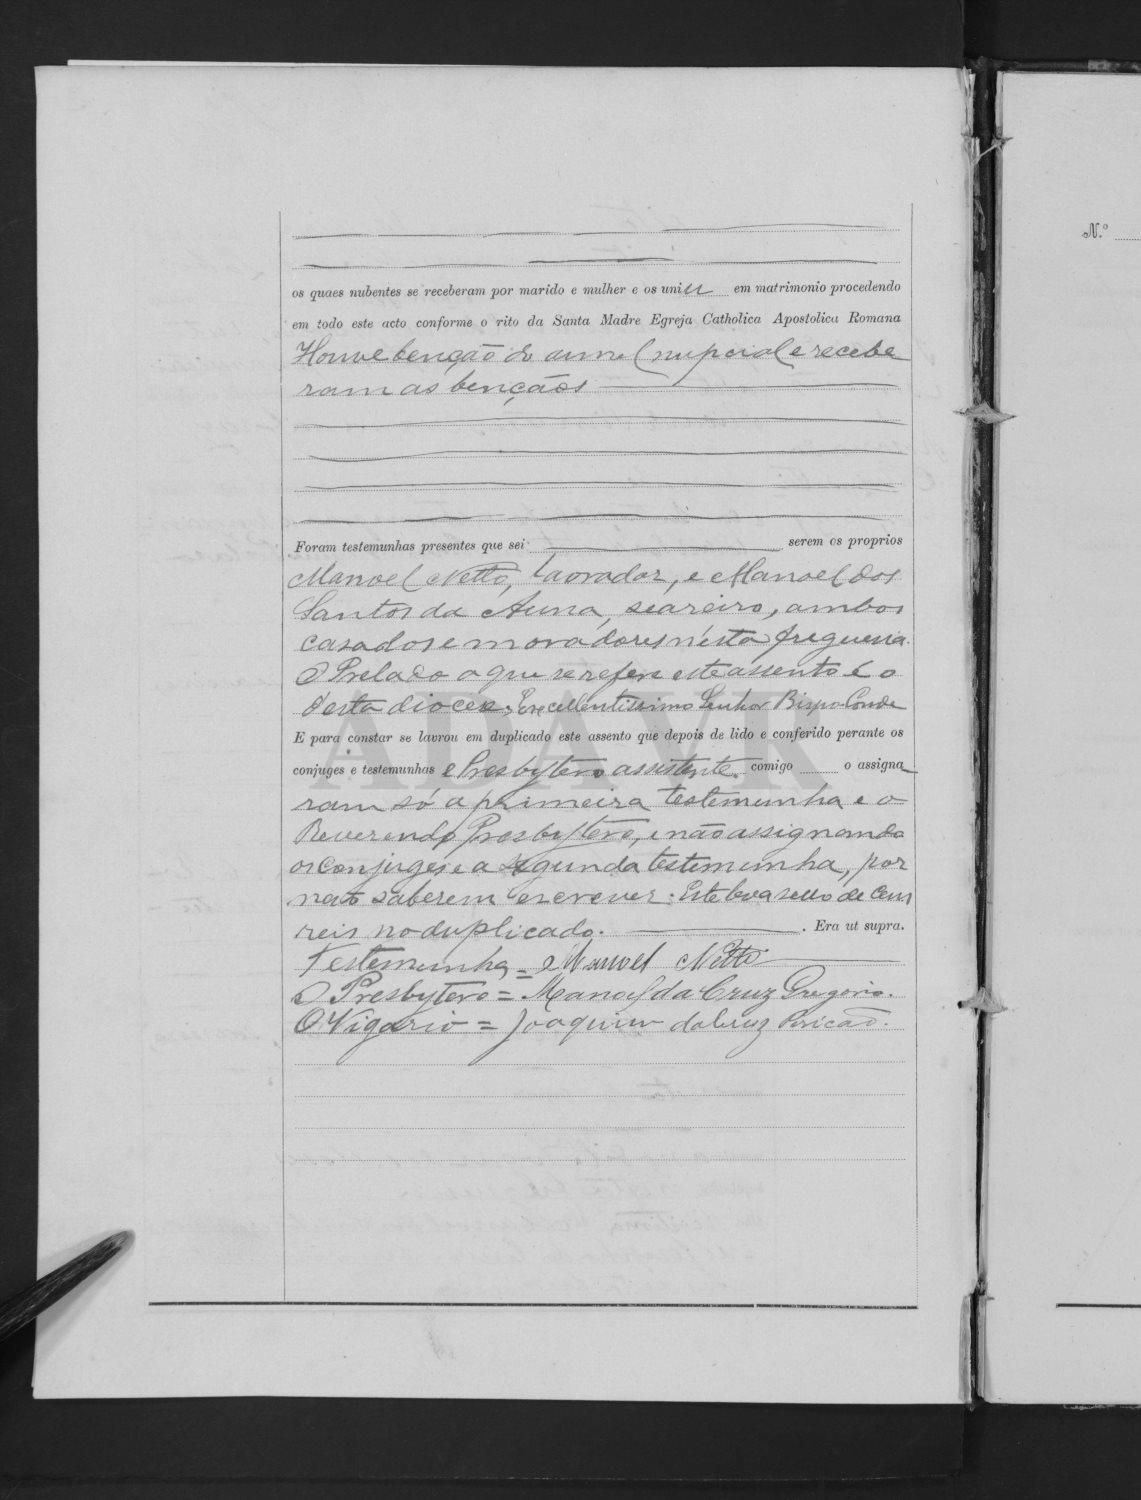 os quaes nubentes se receberam por marido e mulher e os uniu em matrimonio procedendo
em todo este acto conforme o rito da Santa Madre Egreja Catholica Apostolica Romana
Houve benção do annel nupcial e recebe
ram as bençãos
Foram testemunhas presentes que sei serem os proprios
Manoel Netto, lavrador, e Manoel dos
Santos da Anna, seareiro, ambos
casados e moradores n'esta freguesia.
O Prelado a que se refere este assento é o
d'esta diocese, Excellentissimo Senhor Bispo Conde
E para constar se lavrou em duplicado este assento que depois de lido e conferido perante os
conjuges e testemunhas e Presbytero assistente comigo o assigna
ram só a primeira testemunha e o
Reverendo Presbytero, e não assignando
os conjuges e a segunda testemunha, por
não saberem escrever. Este leva sello de cem
reis no duplicado. Era ut supra.
Testemunha = Manoel Netto
O Presbytero = Manoel da Cruz Gregorio.
O Vigario = Joaquim da Cruz Pericão.
N.º
ADAVR